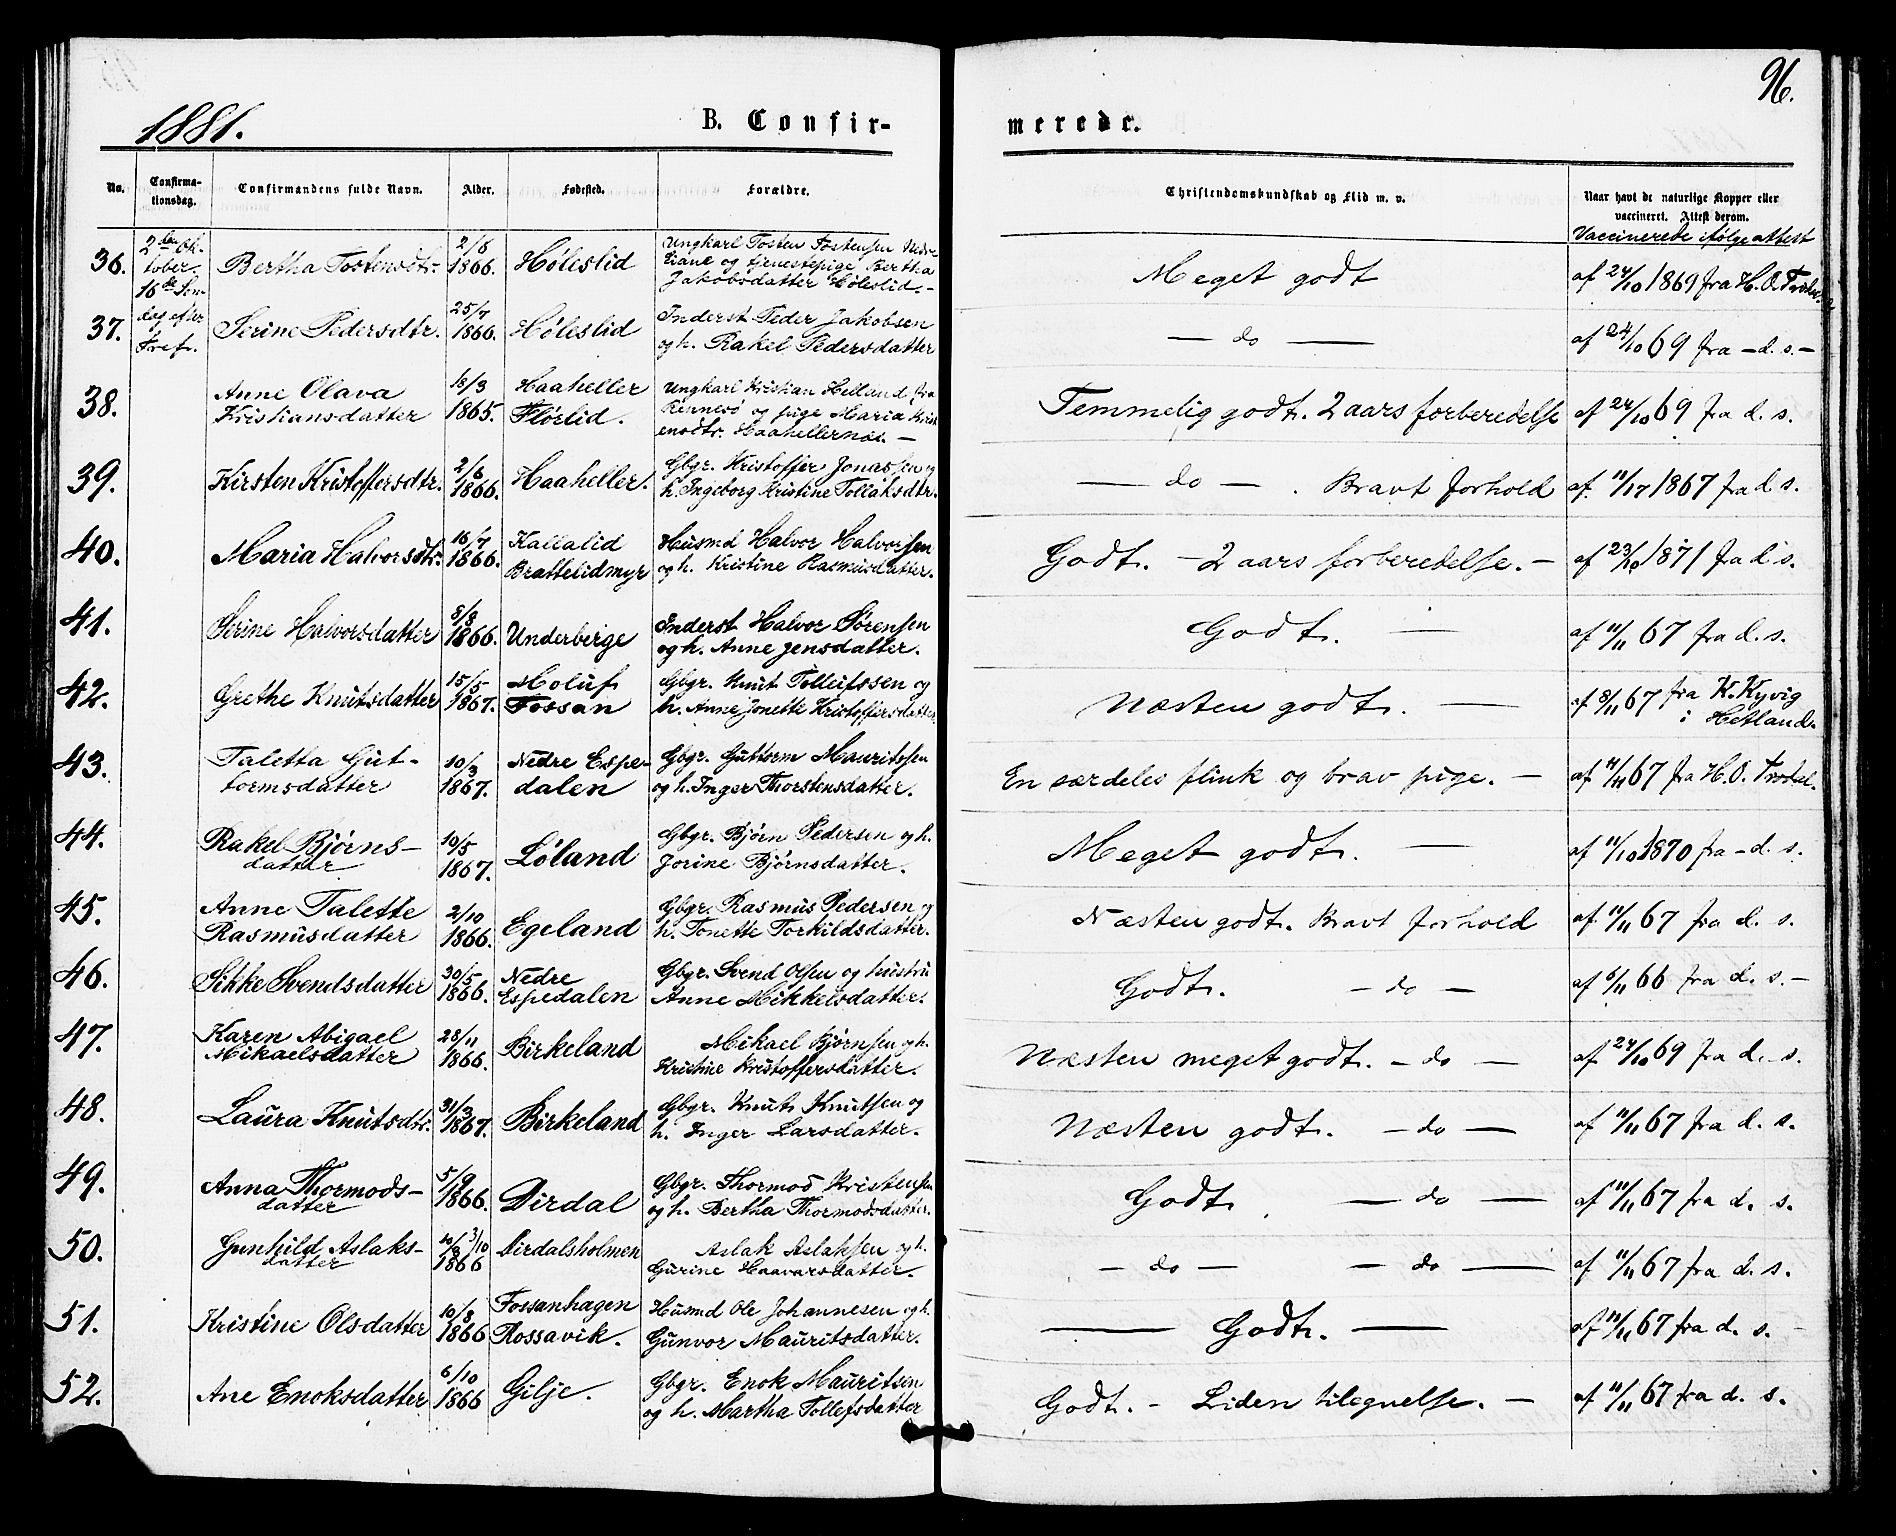 96.
1881.
B. Confir-
merede.
No.
Confirma-
tionsdag.
Confirmandens fulde Navn.
Alder.
Fødested.
Forældre.
Christendomskundskab og Flid m. v.
Naar havt de naturlige Kopper eller
vaccineret. Attest derom.
Vaccinerede ifølge attest
2den Ok-
tober.
16de Søn-
dag efter
Trefr.
36.
Bertha Tostensdtr.
2/8
1866.
Høleslid
Ungkarl Tosten Tostensen Nedre
og tjenestepige Bertha
Jakobsdatter Høleslid.-
Meget godt
af 24/10 1869 fra H. O.
37.
Serine Pedersdtr.
25/7
1866.
Høleslid
Inderst Peder Jakobsen
og h. Rakel Pedersdatter
— do —
af 24/10 69 fra - d. s. -
38.
Anne Olava
Kristiansdatter
18/3
1865.
Haaheller
Flørlid.
Ungkarl Kristian Helland fra
Rennesø og pige Maria Krist
ensdtr. —
Temmelig godt. 2 aars forberedelse
af 24/10 69 fra d. s.
39.
Kirsten Kristoffersdtr.
2/6
1866.
Haaheller.
Gbgr. Kristoffer Jonassen og
h. Ingeborg Kristine Tollaksdtr.
— do — . Bravt forhold
af 11/17 1867 fra d s.
40.
Maria Halvorsdtr.
16/7
1866.
Kallalid
Brattelidmyr
Husmd Halvor Halvorsen
og h. Kristine Rasmusdatter.
Godt. - 2 aars forberedelse. -
af 23/10 1871 fra d s.
41.
Serine Halvorsdatter
8/8
1866.
Underberge
Inderst Halvor Sørensen
og h. Anne Jensdatter.
Godt. —
af 11/11 67 fra d. s.
42.
Grethe Knutsdatter
15/5
1867.
Moluf
Fossan
Gbgr. Knut Tolleifssen og
h. Anne Jonette Kristoffersdatter
Næsten godt. —
af 8/11 67 fra K. Kyvig
i Hetland.
43.
Taletta Gut-
tormsdatter
10/3
1867.
Nedre Espe-
dalen
Gbgr. Guttorm Mauritssen
og h. Inger Thorstensdatter.
En særdeles flink og brav pige. -
af 11/11 67 fra H. O.
44.
Rakel Bjørns-
datter
19/5
1867.
Løland
Gbgr. Bjørn Pedersen og h.
Jorine Bjørnsdatter.
Meget godt. —
af 11/10 1870 fra - d. s.
45.
Anne Talette
Rasmusdatter
2/10
1866.
Egeland
Gbgr. Rasmus Pedersen og
h. Tonette Torkildsdatter.
Næsten godt. Bravt forhold
af 11/11 67 fra d. s.
46.
Sikke Svendsdatter
30/5
1866.
Nedre
Espedalen
Gbgr. Svend Olsen og hustru
Anne Mikkelsdatter.
Godt. - do -
af 6/11 66 fra d. s. -
47.
Karen Abigael
Mikaelsdatter
28/11
1866.
Birkeland
Mikael Bjørnsen og h.
Kristine Kristoffersdatter.
Næsten meget godt. - do -
af 24/10 69 fra d. s.
48.
Laura Knutsdtr.
31/3
1867.
Birkeland
Gbgr. Knut Knutsen og
h. Inger Larsdatter.
Næsten godt. - do —
af 11/11 67 fra d. s.
49.
Anna Thormods-
datter
5/9
1866.
Dirdal
Gbgr. Thormod Kristensen
og h. Bertha Thormodsdatter.
Godt — do —
af 11/11 67 fra d. s.
50.
Gunhild Aslaks-
datter
10/8 3/10
1866
Dirdalsholmen
Aslak Aslaksen og h.
Gurine Haavarsdatter.
- do - - do —
af 11/11 67 fra d. s.
51.
Kristine Olsdatter
10/3
1866
Fossanhagen
Rossavik.
Husmd Ole Johannesen og h.
Gunvor Mauritsdatter.
— Godt. —
af 11/11 67 fra d. s.
52.
Ane Enoksdatter
6/10
1866
Gilje.
Gbgr. Enok Mauritsen
og h. Martha Tollefsdatter
Godt. - Liden tilegnelse. -
af 11/11 67 fra d. s.